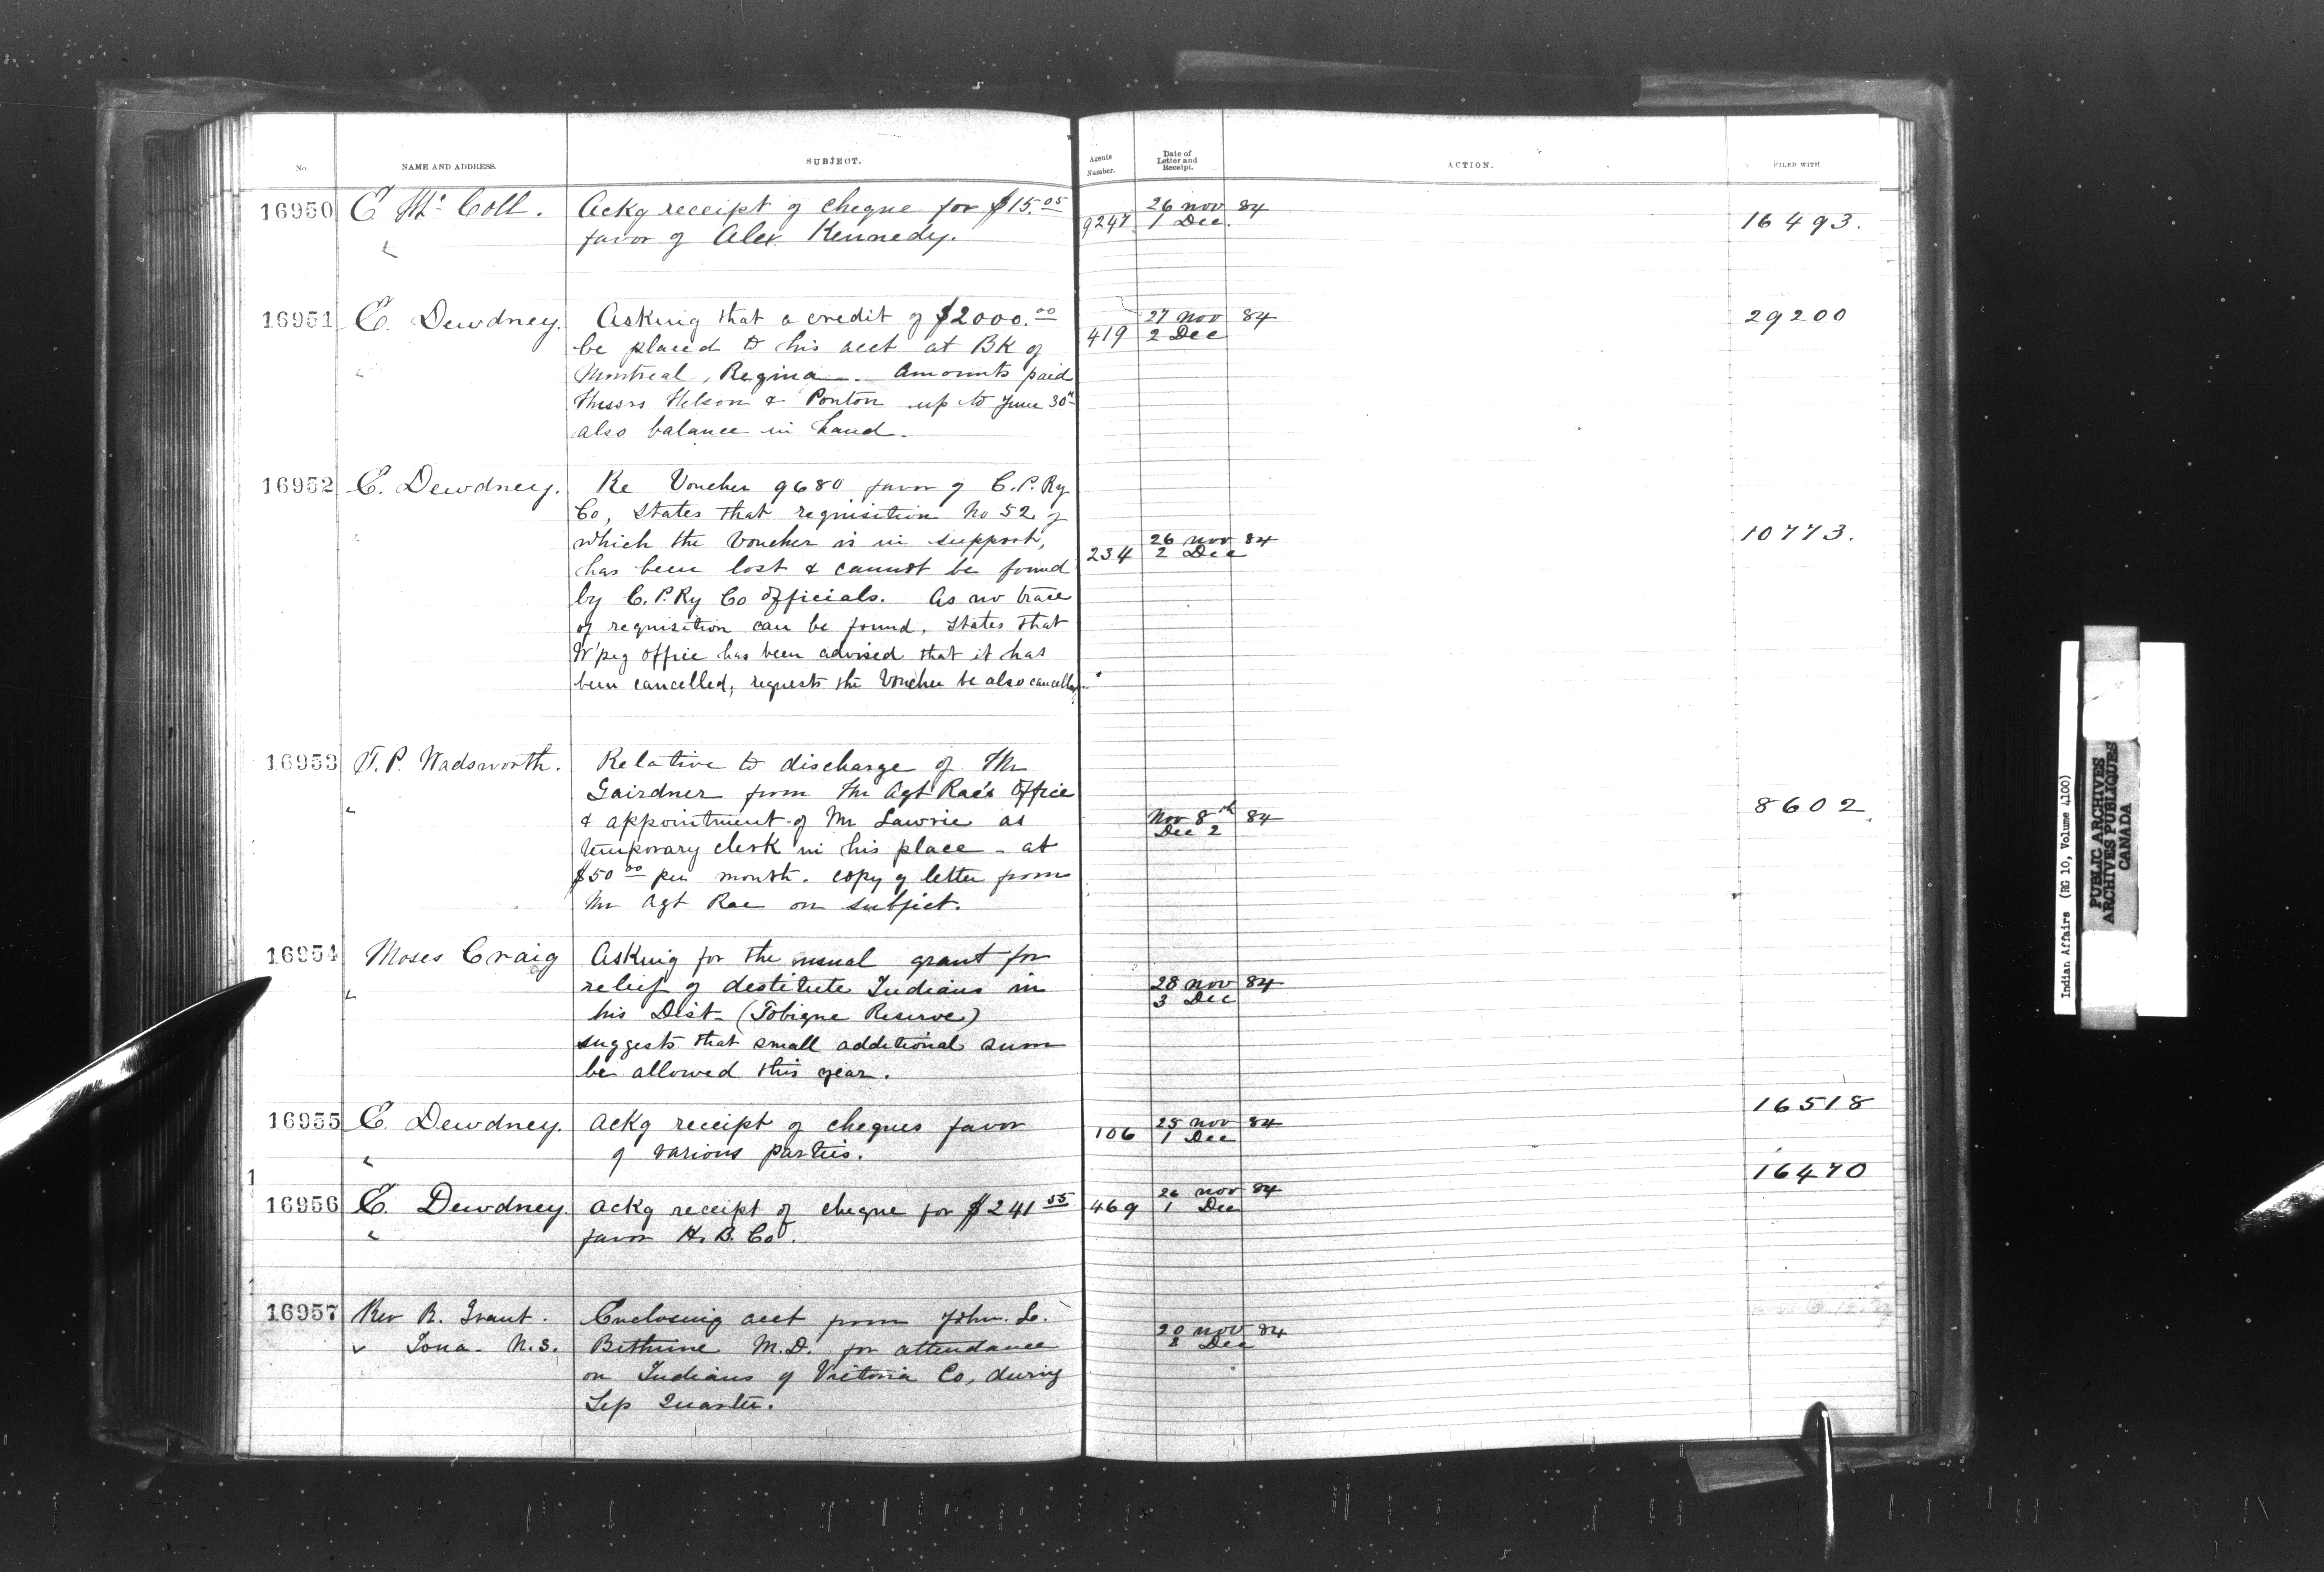 No. NAME AND ADDRESS. SUBJECT. Agents Number. Date of Letter and Receipt. ACTION. FILED WITH
16950 E. McColl. Ackg receipt of cheque for $15.05 26 Nov 84
favor of Alex. Kennedy. 9247 1 Dec. 16493.
16951 E. Dewdney. Asking that a credit of $2000.00 27 Nov 84 29200
be placed to his acct at BK of 419 2 Dec
Montreal, Regina. Amounts paid
Messrs Nelson & Ponton up to June 30th
also balance in hand.
16952 E. Dewdney. Re Voucher 9680 favor of C.P.Ry
Co, states that requisition No 52 of
which the voucher is in support, 26 Nov 84 10773.
has been lost & cannot be found 234 2 Dec
by C.P.Ry Co officials. As no trace
of requisition can be found, states that
W'peg office has been advised that it has
been cancelled, requests the voucher be also cancelled.
16953 T.P. Wadsworth. Relative to discharge of Mr
Gairdner from Mr Agt Rae's office 8602
& appointment of Mr Lawrie as Nov 8th 84
temporary clerk in his place - at Dec 2
$50.00 per month. copy of letter from
Mr Agt Rae on subject.
16954 Moses Craig Asking for the usual grant for
relief of destitute Indians in 28 Nov 84
his Dist- (Tobique Reserve) 3 Dec
suggests that small additional sum
be allowed this year.
16955 E. Dewdney. Ackg receipt of cheques favor 106 25 Nov 84 16518
of various parties. 1 Dec
16956 E. Dewdney. Ackg receipt of cheque for $241.55 469 26 Nov 84 16470
favor H.B.Co. 1 Dec
16957 Rev R. Grant. Enclosing acct from John. L.
Iona - N.S. Bethune M.D. for attendance 20 Nov 84
on Indians of Victoria Co, during Dec
Sep Quarter.
Indian Affairs (RG 10, Volume 4100)
PUBLIC ARCHIVES
ARCHIVES PUBLIQUES
CANADA